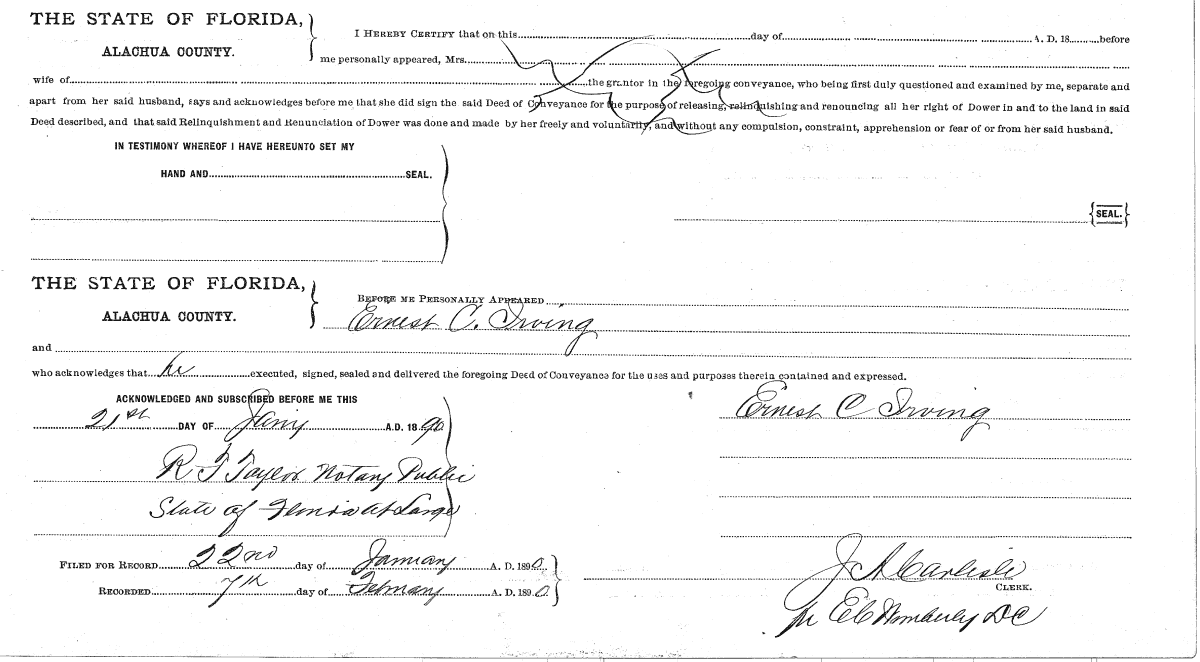 THE STATE OF FLORIDA,
ALACHUA COUNTY.
I HEREBY CERTIFY that on this day of A. D. 18 before
me personally appeared, Mrs.
wife of the grantor in the foregoing conveyance, who being first duly questioned and examined by me, separate and
apart from her said husband, says and acknowledges before me that she did sign the said Deed of Conveyance for the purpose of releasing, relinquishing and renouncing all her right of Dower in and to the land in said
Deed described, and that said Relinquishment and Renunciation of Dower was done and made by her freely and voluntarily, and without any compulsion, constraint, apprehension or fear of or from her said husband.
IN TESTIMONY WHEREOF I HAVE HEREUNTO SET MY
HAND AND SEAL.
{SEAL.}
THE STATE OF FLORIDA,
ALACHUA COUNTY.
BEFORE ME PERSONALLY APPEARED
Ernest C. Irving
and
who acknowledges that he executed, signed, sealed and delivered the foregoing Deed of Conveyance for the uses and purposes therein contained and expressed.
ACKNOWLEDGED AND SUBSCRIBED BEFORE ME THIS
21st DAY OF Jany A.D. 1890
Ernest C Irving
R F Taylor Notary Public
State of Florida at Large
FILED FOR RECORD 22nd day of January A. D. 1890
RECORDED 7th day of February A. D. 1890
J A Carlisle
CLERK.
pr E C Wimberly DC